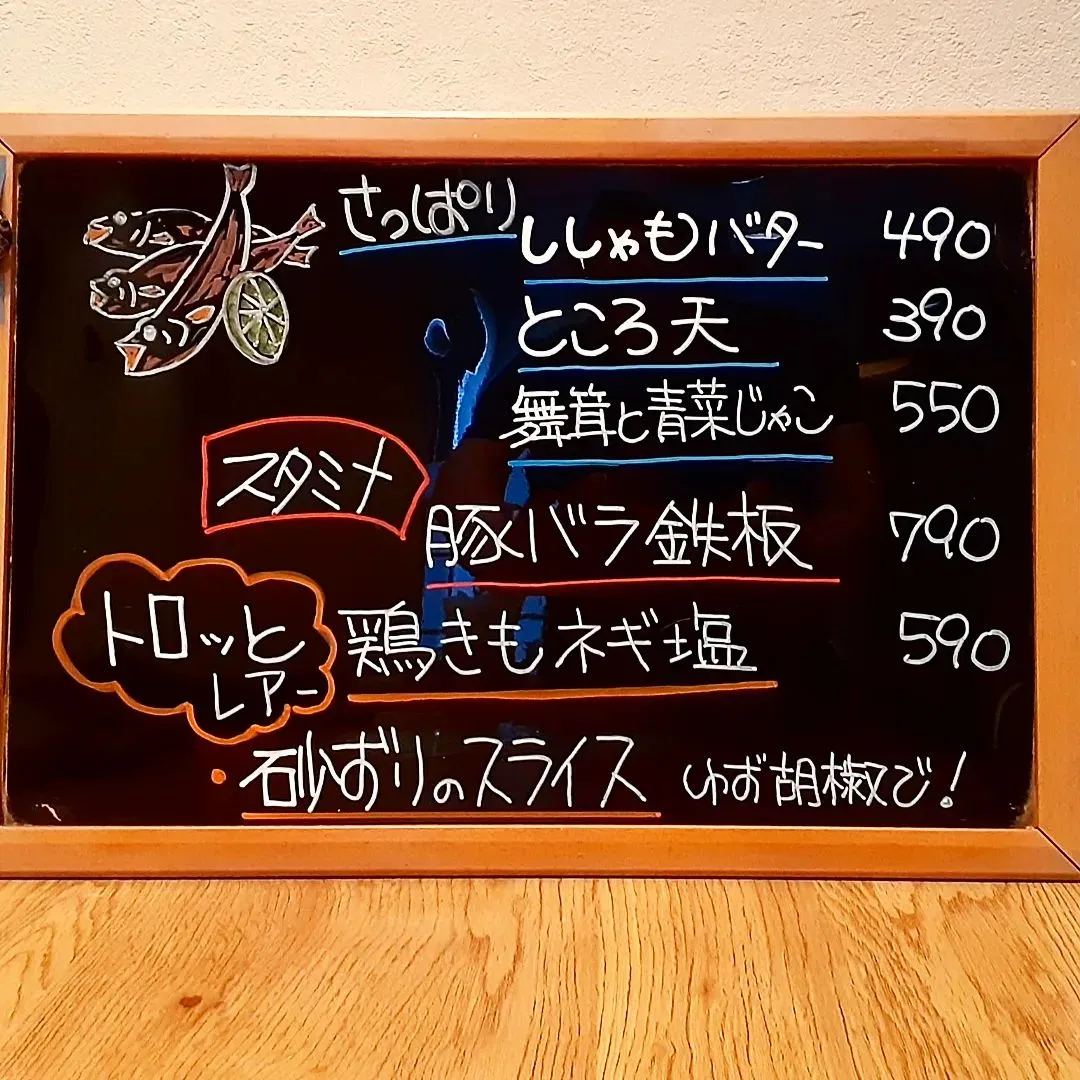 さっぱり
ししゃもバター 490
ところ天 390
舞茸と青菜じゃこ 550
スタミナ
豚バラ鉄板 790
トロッと
レアー
鶏きもネギ塩 590
・砂ずりのスライス ゆず胡椒で！